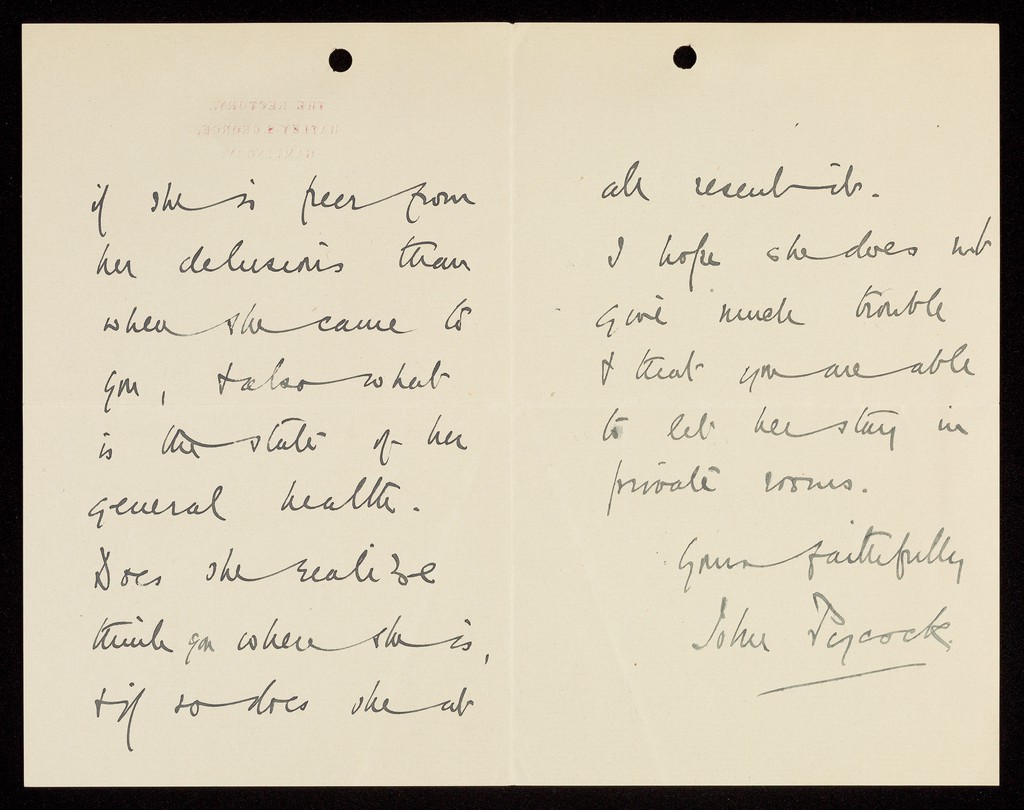 THE RECTORY,
HATLEY S. GEORGE,
GAMLINGAY.
if she is freer from
her delusions than
when she came to
you, & also what
is the state of her
general health.
Does she realize
think you where she is,
& if so does she at
all resent it.
I hope she does not
give much trouble
& that you are able
to let her stay in
private rooms.
Yours faithfully
John Paycock.